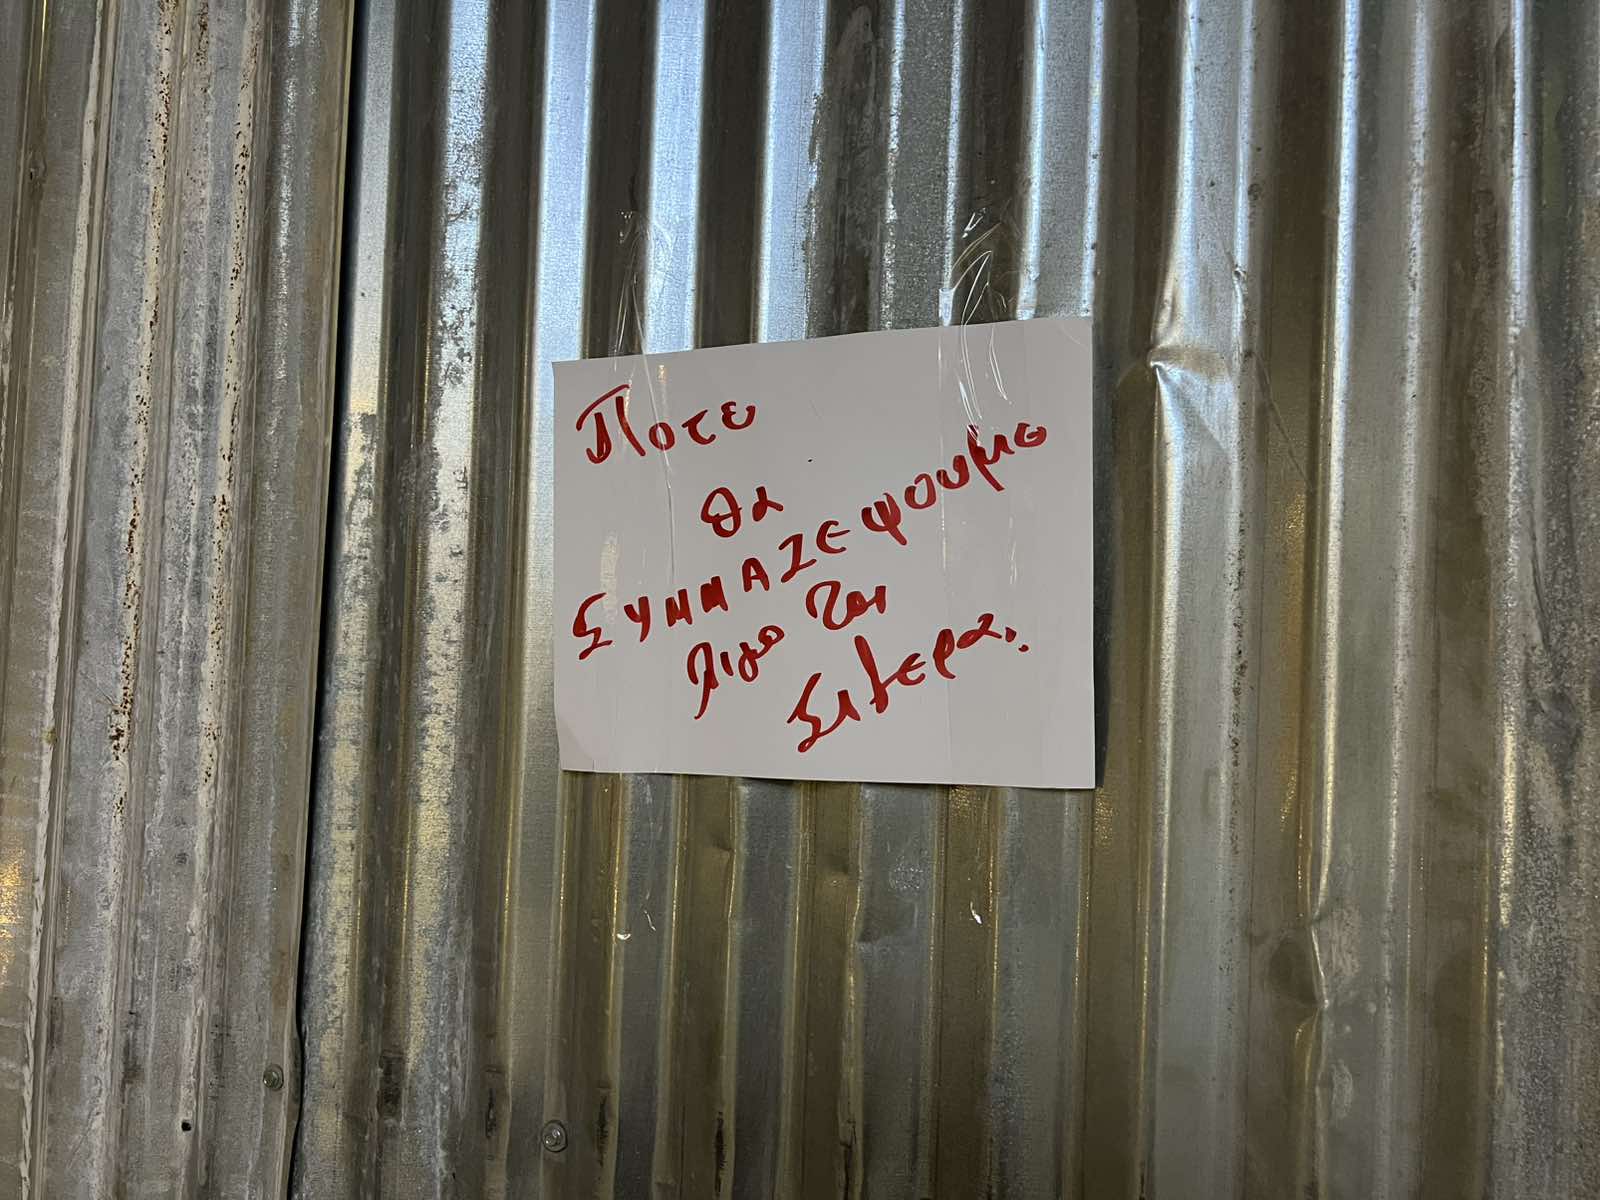 Ποτε
θα
ΣΥΜΜΑΖΕψουμε
λιγο τα
Σιδερα;